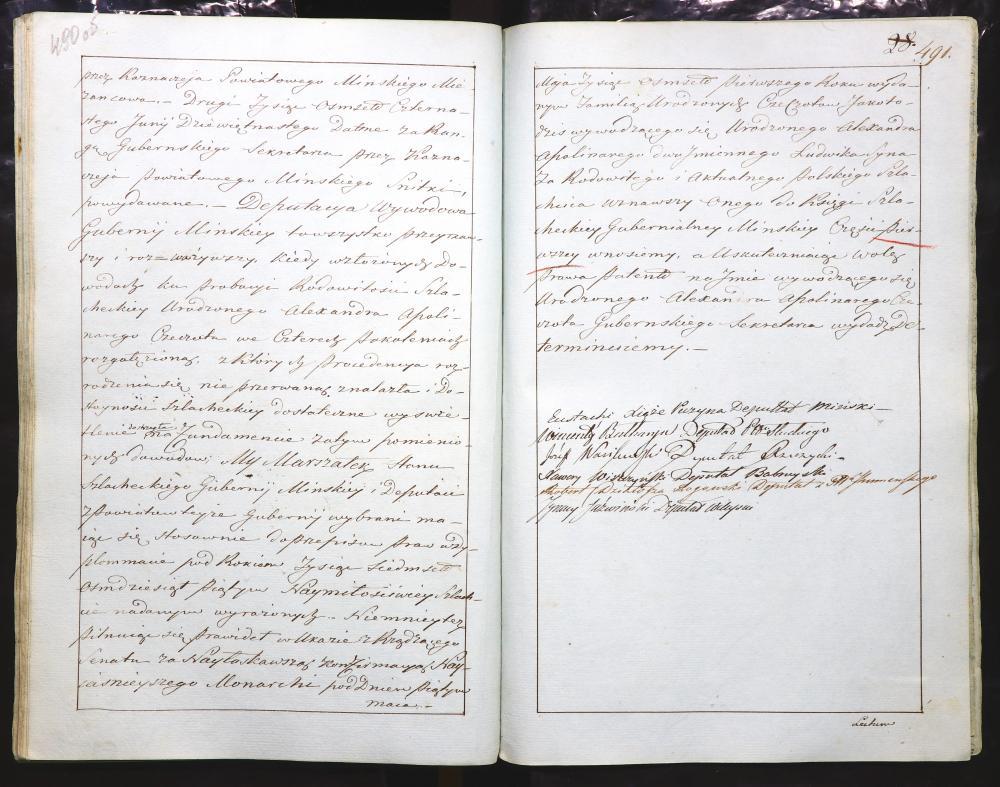 490 об
przez Kaznaczeja Powiatowego Mińskiego Mie-
zancowa. – Drugi Tysiąc Osmset Czterna-
stego Junij Dziewiętnastego Datne za Ran-
gę Gubernskiego Sekretarza przez Kazna-
czeja Powiatowego Mińskiego Snitki,
powydawane. – Deputacya Wywodowa
Gubernij Mińskiey towszystko przeyrzaw-
szy i roz=ważywszy, kiedy wzłożonych Do-
wodach ku Probacyi Rodowitości Szla-
checkiey Urodzonego Alexandra Apoli-
narego Czeczota we Czterech Pokoleniach
rozgałęzioną, z których Procedencya roz-
rodzenia się nie przerwaną, znalazła i Do-
stoyności Szlacheckiey dostateczne wyświe-
tlenie Na Fundamencie zatym pomienio-
nych dowodow; My Marszałek Stanu
Szlacheckiego Gubernij Mińskiey i Deputaci
z Powiatow teyże Gubernij wybrani ma-
iąc się stosownie do przepisu praw w Dy-
plommacie pod Rokiem Tysiąc Siedmset
Osmdziesiąt Piątym Naymiłościwiey Szlach-
cie nadanym wyrażonych. – Niemniey też
Pilnuiąc się Prawideł w Ukazie z Rządzącego
Senatu za Nayłaskawszą konfirmacyą Nay-
iaśnieyszego Monarchi pod Dniem Piątym
maia. –
28. 491.
Maja Tysiąc Osmset Pierwszego Roku wyda-
nym Familią Urodzonych Czeczotow Jakoto-
dzis wywodzącego się Urodzonego Alexandra
Apolinarego dwuJmiennego Ludwika Syna
Za Rodowitego i Aktualnego Polskiego Szla-
chcica Uznawszy Onego do Księgi Szla-
checkiey Gubernialney Mińskiey Części Pier-
wszey wnosiemy, a Uskuteczniaiąc wolę
Prawa Patent na Jmie wywodzącego się
Urodzonego Alexandra Apolinarego Cze-
czota Gubernskiego Sekretarza wydadź De-
terminuiemy. –
Eustachi Xiąże Puzyna Deputat Miński –
Deputat Ptt
Józef Deputat
Xawery Deputat
Robert Deputat z
Ignacy Deputat
Lectum